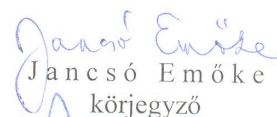 Jancsó Emőke
Jancsó Emőke
körjegyző